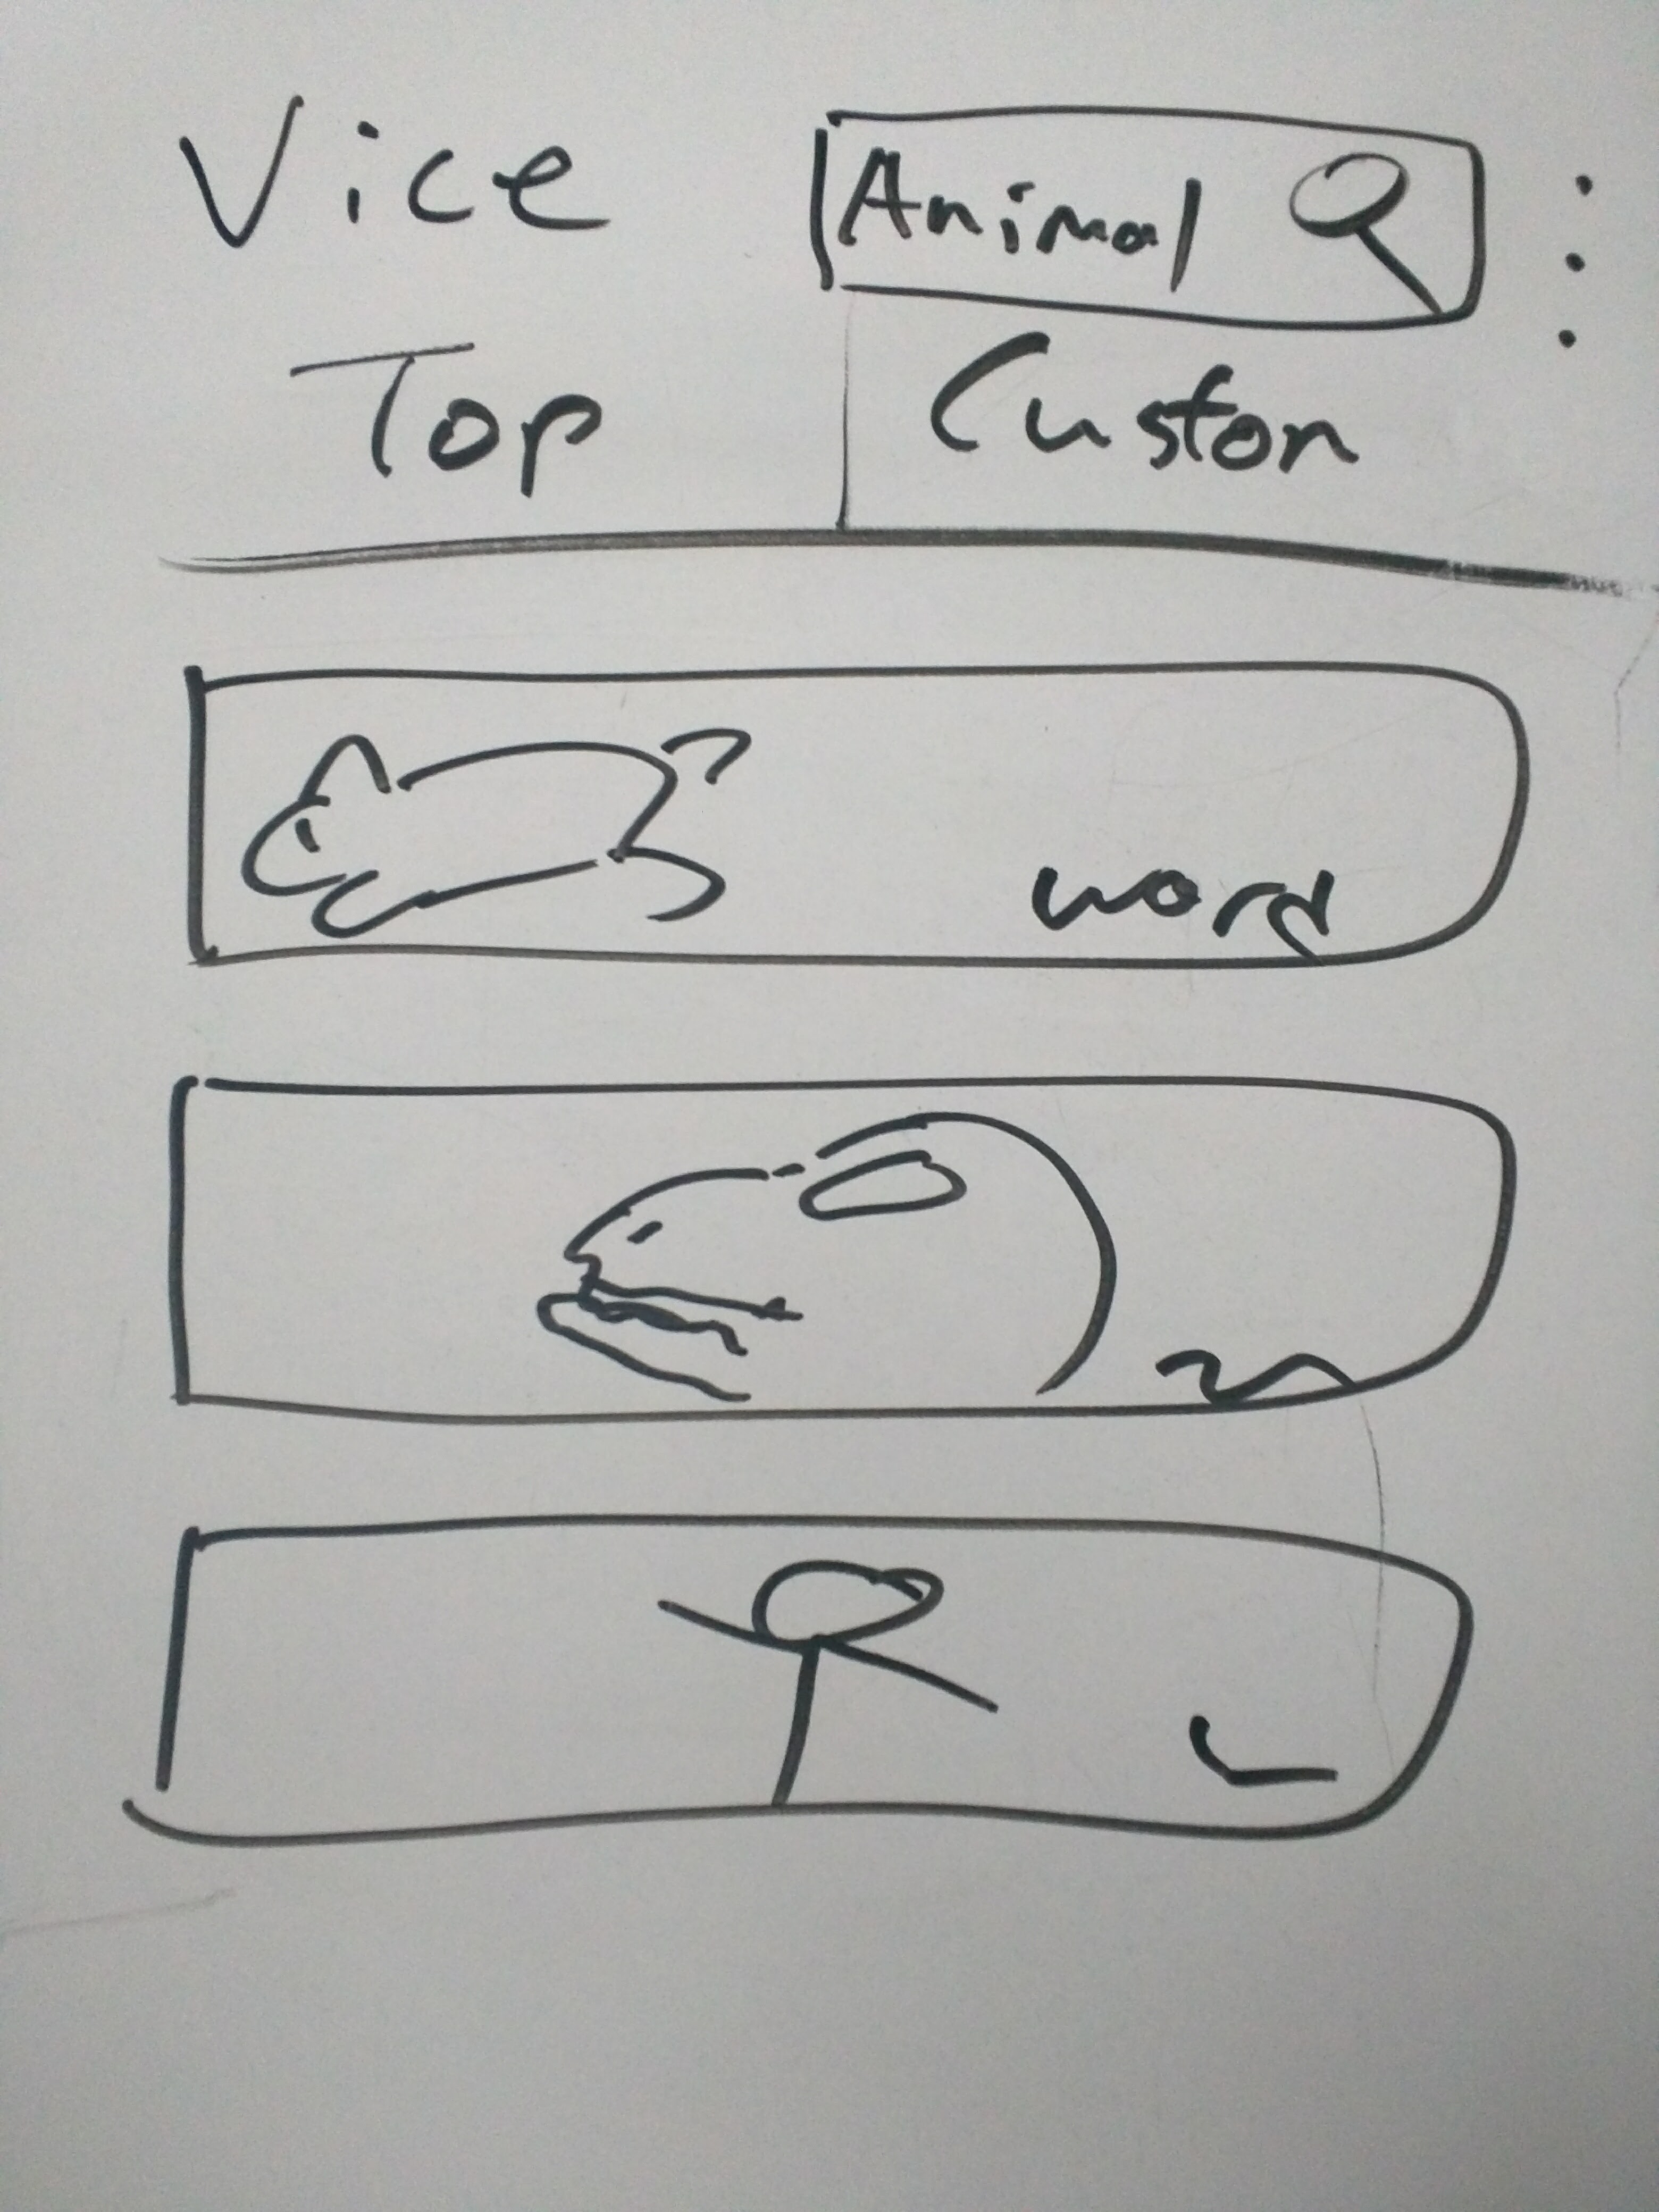 Vice
Animal
Top
Custom
word